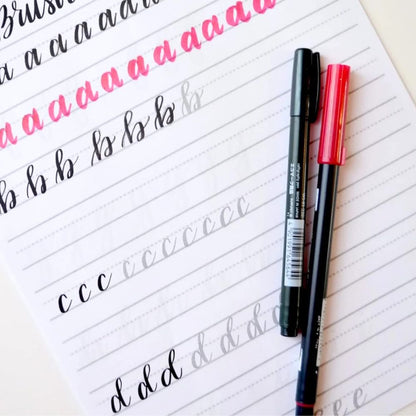 Brush
a a a a a a a
a a a a a a a a a a a
b b b b b b b
c c c c c c c c c c
d d d d d d d
e e